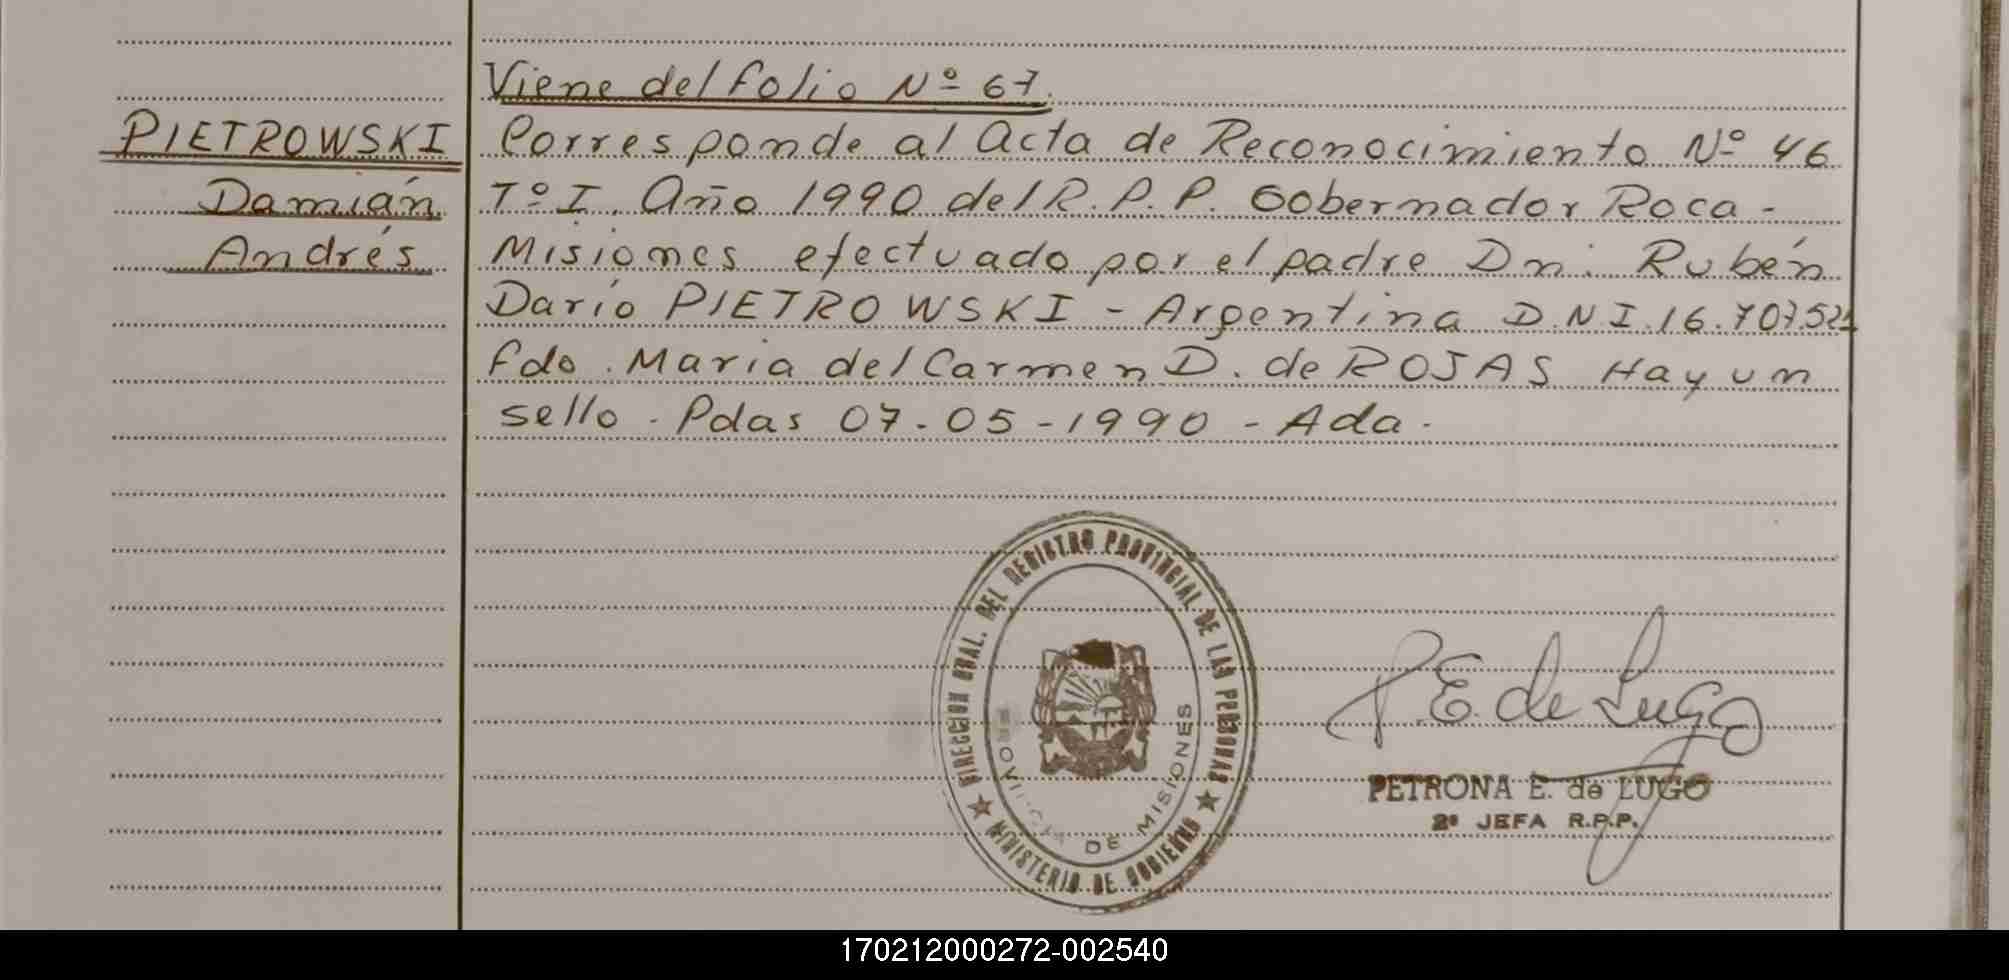 Viene del folio Nº 67.
PIETROWSKI
Damián
Andrés
Corresponde al Acta de Reconocimiento Nº 46
Tº I. Año 1990 del R.P.P. Gobernador Roca -
Misiones efectuado por el padre Dn. Rubén
Darío PIETROWSKI - Argentina DNI.16.707.521
fdo. Maria del Carmen D. de ROJAS Hay un
sello. Pdas 07-05-1990 - Ada.
DIRECCION GRAL. DEL REGISTRO PROVINCIAL DE LAS PERSONAS
MINISTERIO DE GOBIERNO
PROVINCIA DE MISIONES
P.E. de Lugo
PETRONA E. de LUGO
2ª JEFA R.P.P.
170212000272-002540